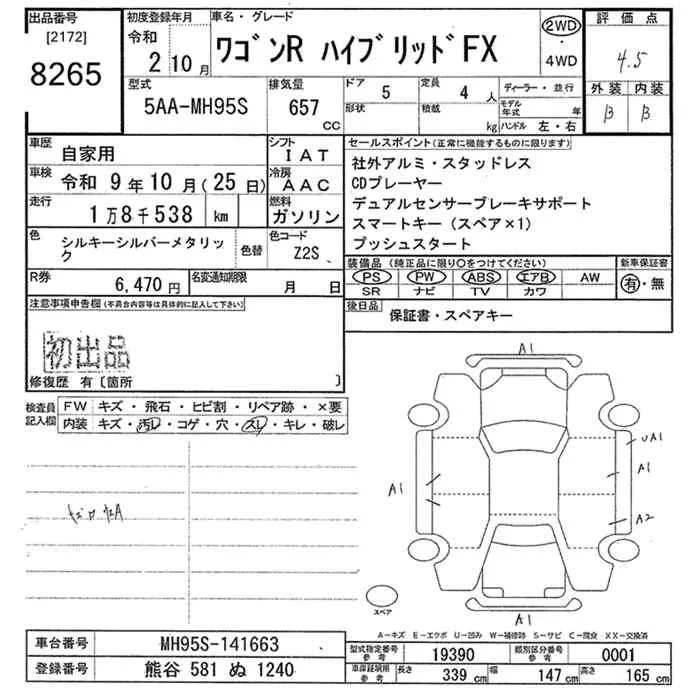 出品番号
[2172]
8265
初度登録年月
令和
2 10 月
車名・グレード
ワゴンR ハイブリッドFX
2WD
・
4WD
評価点
4.5
外装 内装
B B
型式
5AA-MH95S
排気量
657
CC
ドア
5
形状
定員
4 人
積載
kg
ディーラー・並行
モデル
年式 年
ハンドル 左・右
車歴
自家用
シフト
IAT
車検
令和 9年 10月(25日)
冷房
AAC
走行
1万8千538 km
燃料
ガソリン
色
シルキーシルバーメタリッ
ク
色替
色コード
Z2S
R券
6,470 円
名変通知期限
月 日
セールスポイント(正常に機能するものに限ります)
社外アルミ・スタッドレス
CDプレーヤー
デュアルセンサーブレーキサポート
スマートキー(スペア×1)
プッシュスタート
装備品(純正品に限り○をつけてください)
PS PW ABS エアB AW
SR ナビ TV カワ
新車保証書
有・無
後日品
保証書・スペアキー
注意事項申告欄(不具合内容等は具体的に記入して下さい)
初出品
修復歴 有〔箇所 〕
検査員
記入欄
FW キズ・飛石・ヒビ割・リペア跡・×要
内装 キズ・汚レ・コゲ・穴・スレ・キレ・破レ
A1
UA1
A1
A1
A2
A1
スペア
A-キズ E-エクボ U-凹み W-補修跡 S-サビ C-腐食 XX-交換済
車台番号
MH95S-141663
登録番号
熊谷 581 ぬ 1240
型式指定番号
参考
19390
類別区分番号
参考
0001
車庫証明用
参考
長さ
339 cm
幅
147 cm
高さ
165 cm